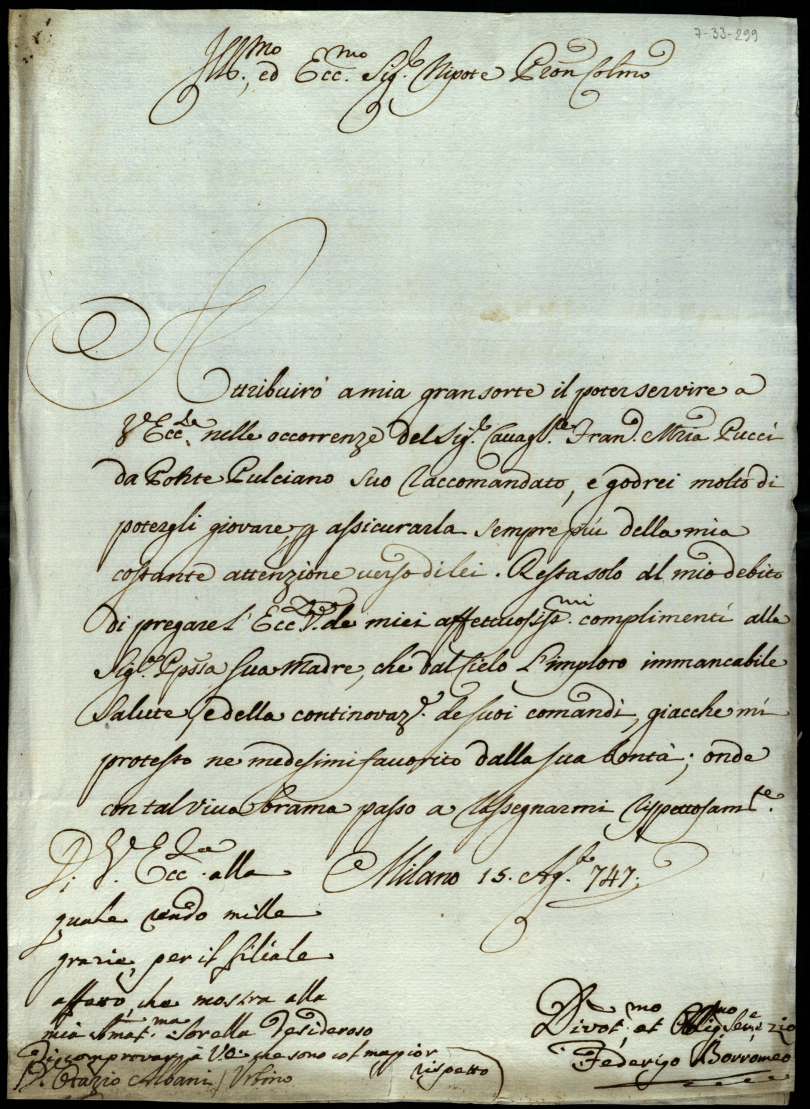 7-33-299
Ill.mo ed Ecc.mo Sig.r Nipote Pron Colmo
Attribuirò a mia gran sorte il poter servire a
V. Ecc.za nelle occorrenze del Sig.r Cavag.re Fran.o Mria Pucci
da Ponte Pulciano suo Raccomandato, e godrei molto di
potergli giovare, p assicurarla sempre più della mia
costante attenzione verso di lei. Resta solo al mio debito
di pregare l'Ecc.za V. de miei affettuosiss.mi complimenti alla
Sig.a Ppssa sua Madre, che dal Cielo l'imploro immancabile
salute, e della continovaz.e de suoi comandi, giacche mi
protesto ne medesimi favorito dalla sua bontà; onde
con tal viva brama passo a Rassegnarmi Rispettosam.te
Di V. Ecc.za alla
Milano 15. Ag.to 747.
quale rendo mille
grazie, per il filiale
affetto, che mostra alla
mia Amat.ma Sorella Desideroso
Di comprovar à VE che sono col magior
rispetto
D. Orazio Albani / Urbino
Divot.mo et Oblig.mo Serv.e Zio
Federigo Borromeo